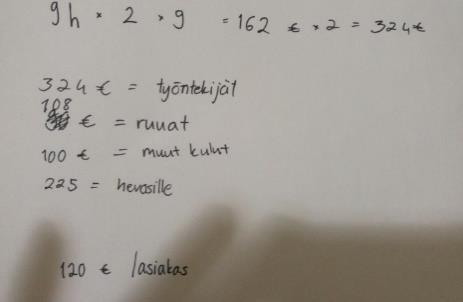 9h × 2 × 9 = 162 € × 2 = 324€
324 € = työntekijät
108 € = ruuat
100 € = muut kulut
225 = hevosille
120 € lasiakas